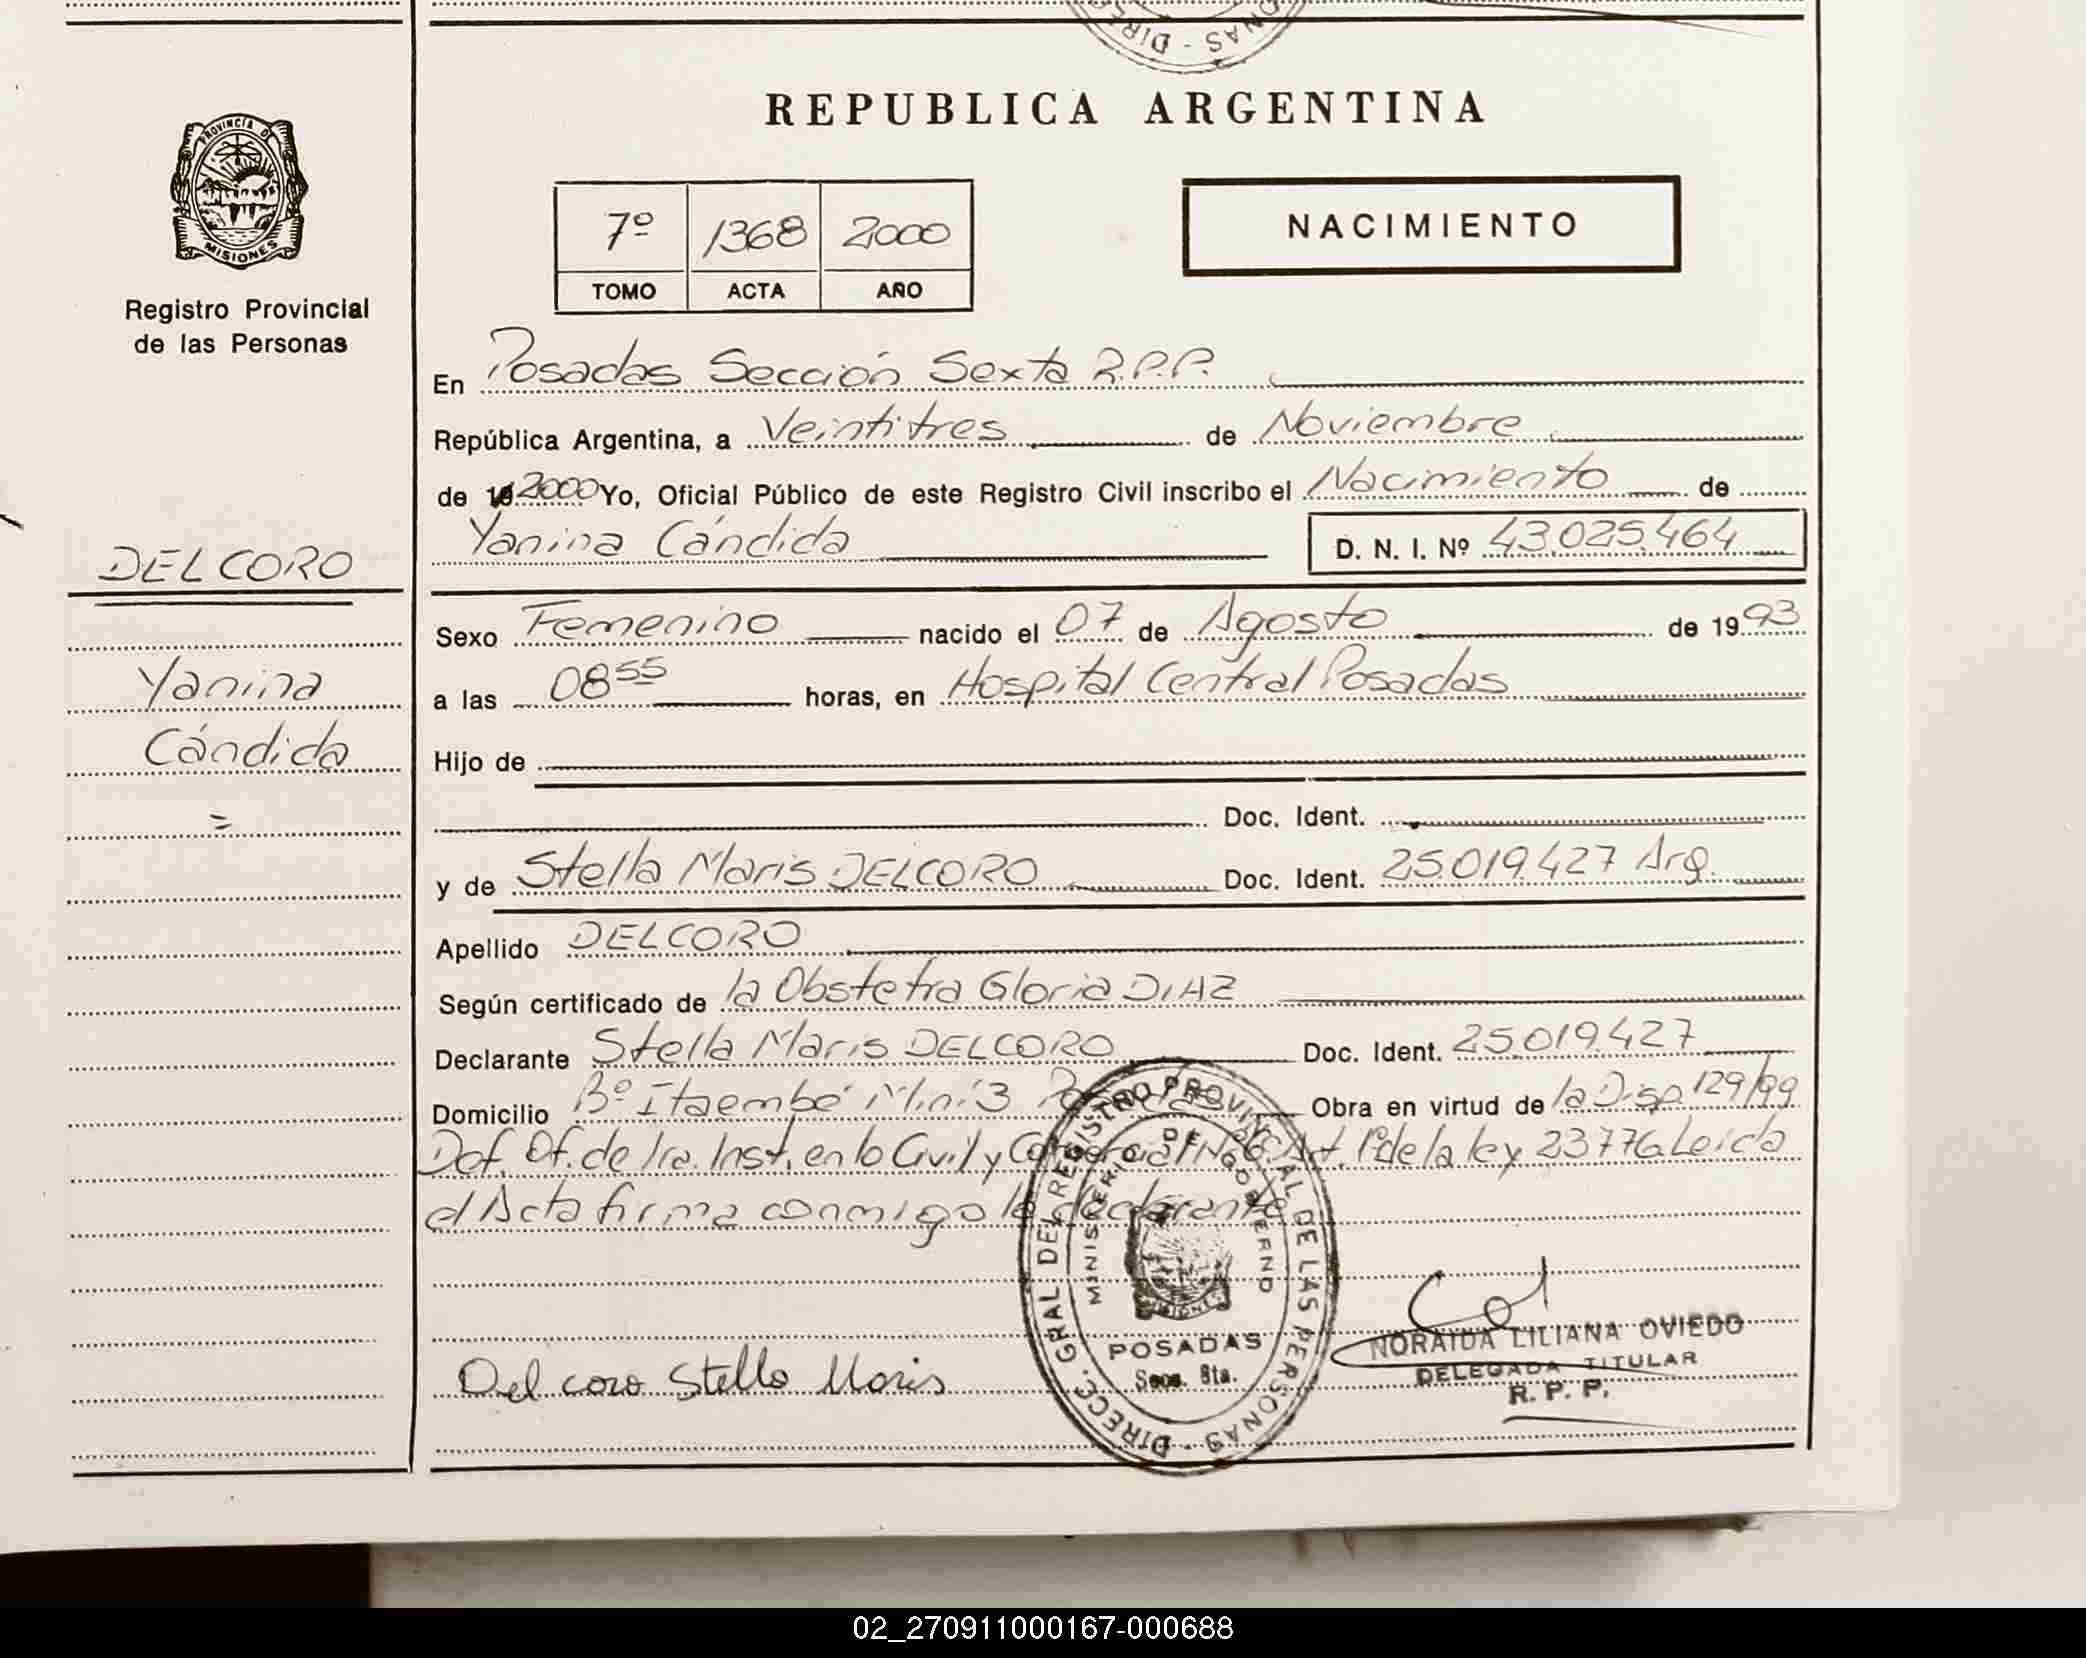 DIREC
ONAS - DIREC
PROVINCIA DE
MISIONES
Registro Provincial
de las Personas
DELCORO
Yanina
Cándida
=
REPUBLICA ARGENTINA
7º 1368 2000
TOMO ACTA AÑO
NACIMIENTO
En Posadas Sección Sexta R.P.P.
República Argentina, a Veintitres de Noviembre
de 19 2000 Yo, Oficial Público de este Registro Civil inscribo el Nacimiento de
Yanina Cándida D. N. I. Nº 43.025.464
Sexo Femenino nacido el 07 de Agosto de 1993
a las 08 55 horas, en Hospital Central Posadas
Hijo de
Doc. Ident.
y de Stella Maris DELCORO Doc. Ident. 25.019.427 Arg.
Apellido DELCORO
Según certificado de la Obstetra Gloria DIAZ
Declarante Stella Maris DELCORO Doc. Ident. 25.019.427
Domicilio Bº Itaembé Miní 3 Posadas Obra en virtud de la Disp. 129/99
Def. Of. de 1ra. Inst. en lo Civil y Comercial Nº 6. Art. 1º de la ley 23776. Leida
el Acta firma conmigo la declarante
DIRECC. GRAL DEL REGISTRO PROVINCIAL DE LAS PERSONAS -
MINISTERIO DE GOBIERNO
MISIONES
POSADAS
Secc. 6ta.
Del coro Stella Maris
NORAIDA LILIANA OVIEDO
DELEGADA TITULAR
R. P. P.
02_270911000167-000688